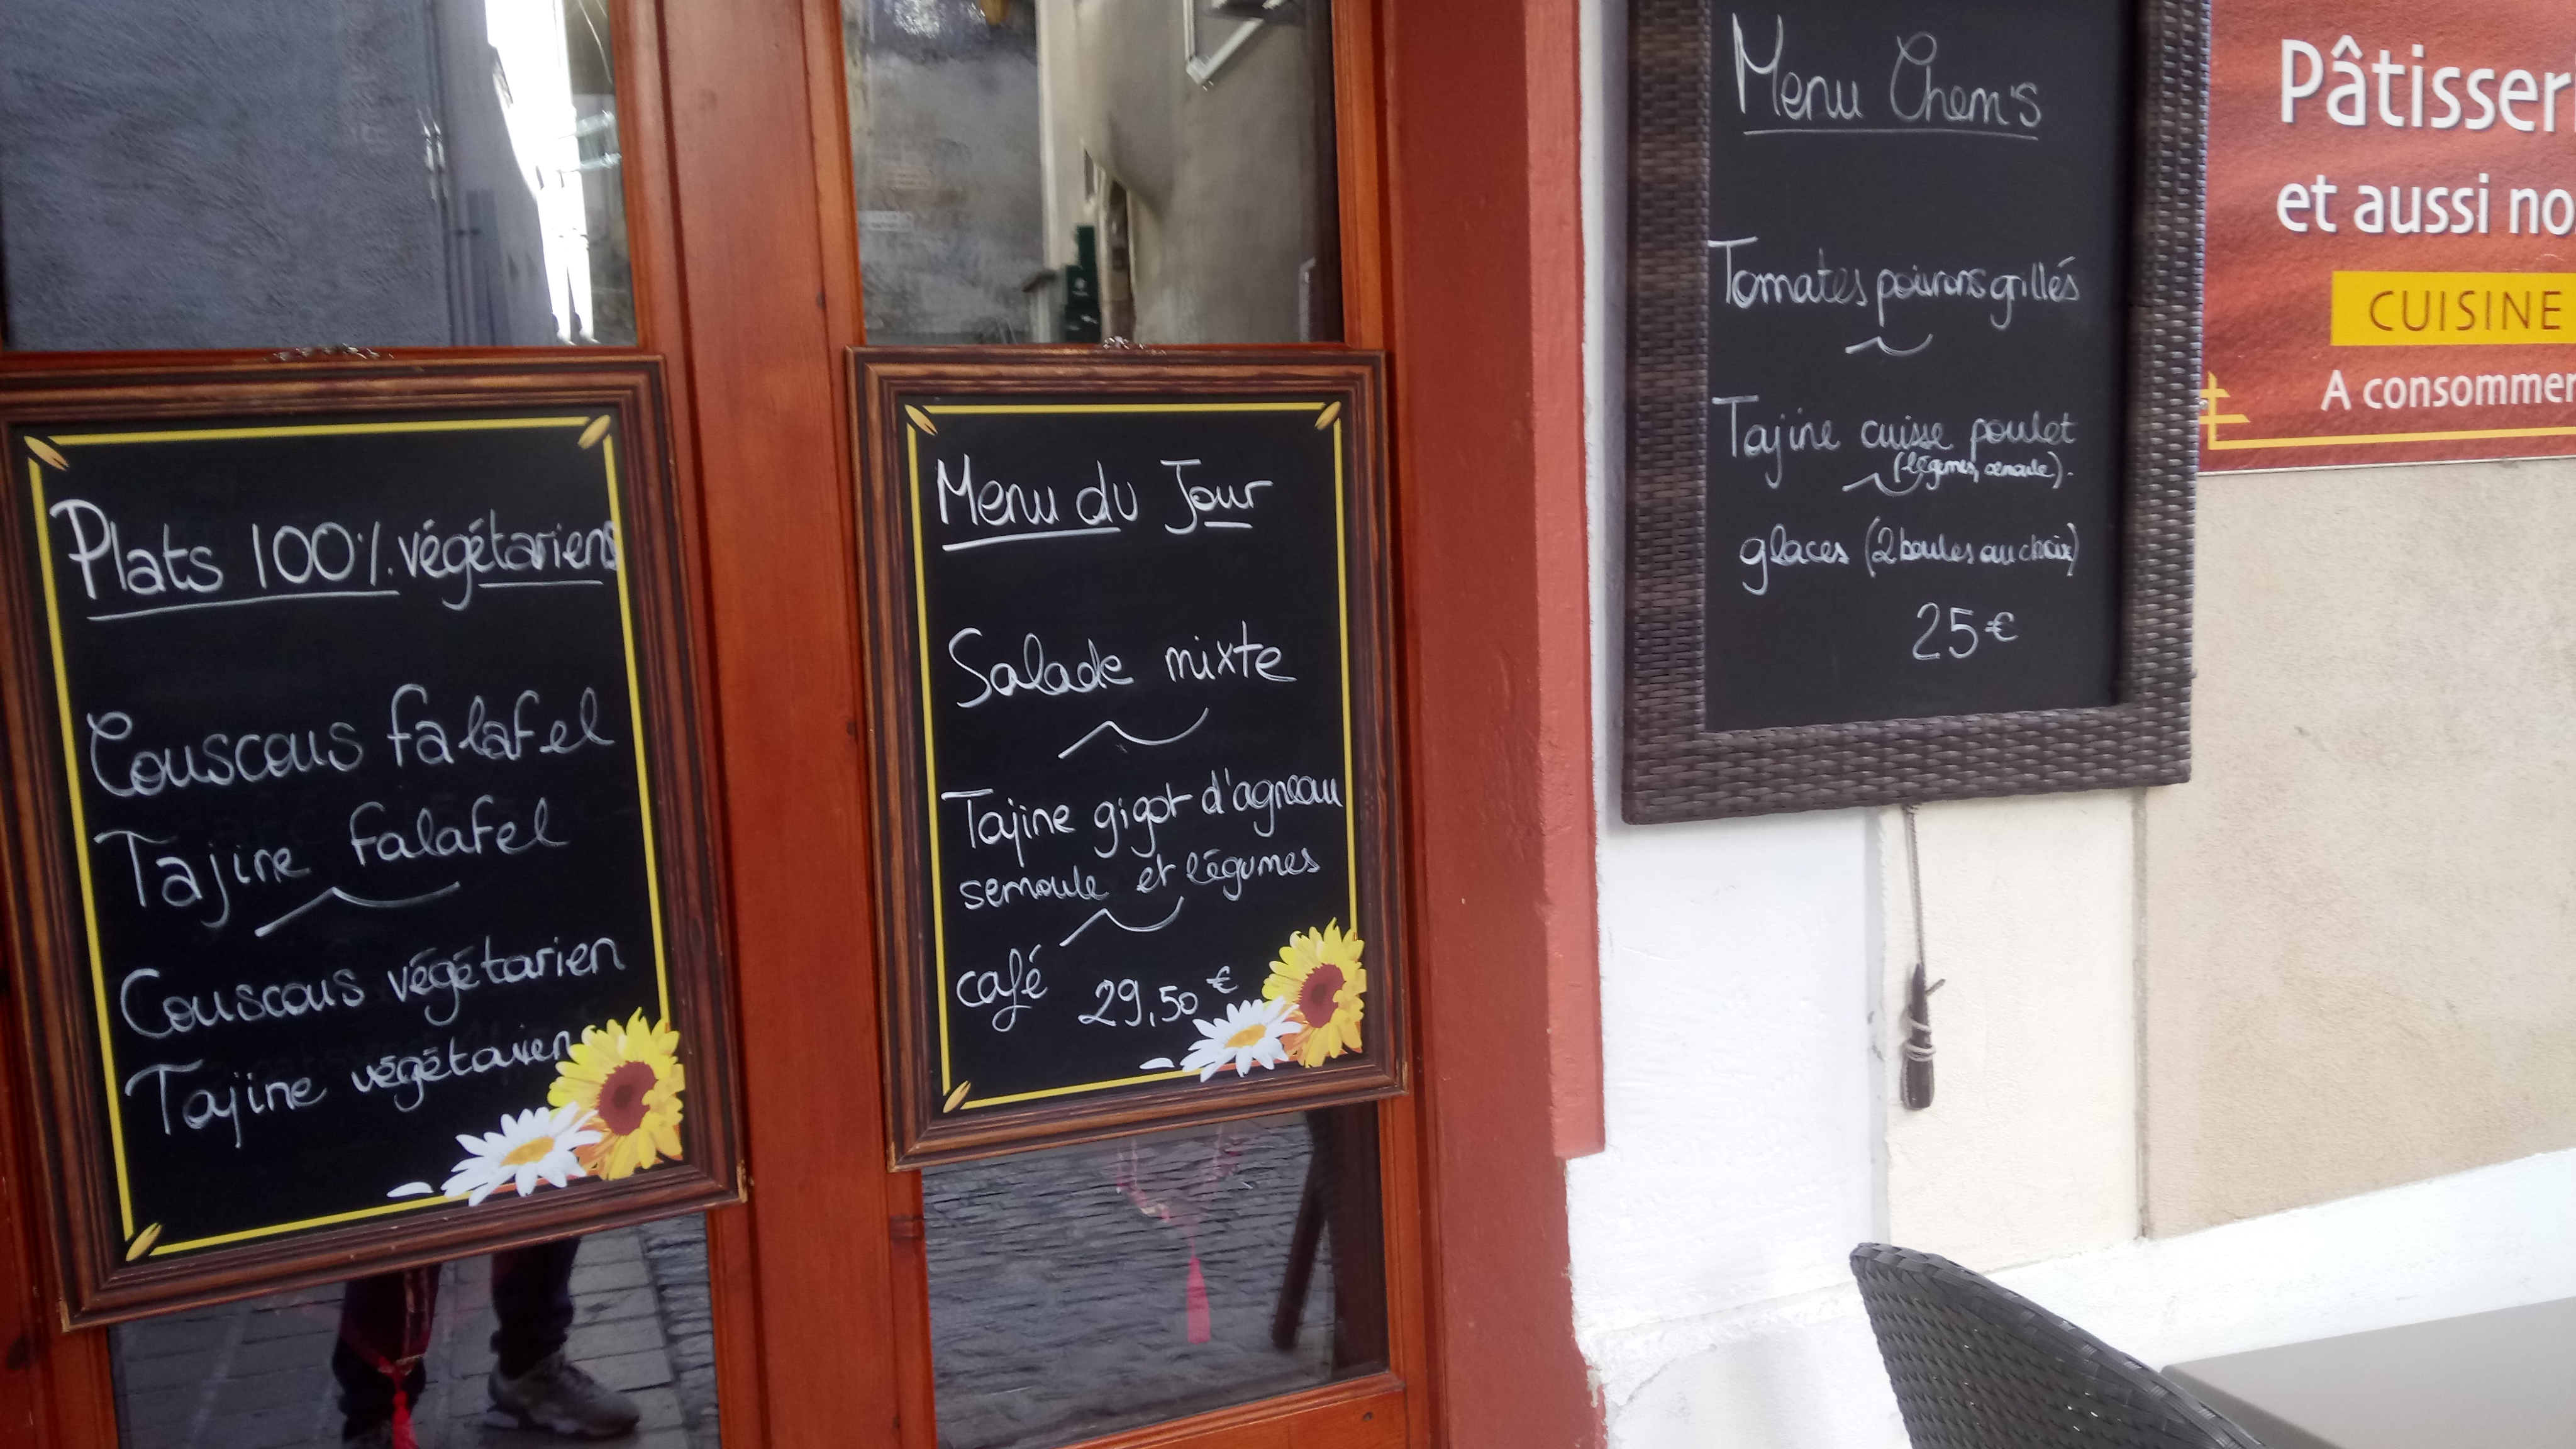 Plats 100%. végétariens
Couscous falafel
Tajine falafel
Couscous végétarien
Tajine végétarien
Menu du Jour
Salade mixte
Tajine gigot d'agneau
semoule et légumes
café 29,50 €
Menu Chem's
Tomates poivrons grillés
Tajine cuisse poulet
(légumes, semoule).
glaces (2 boules au choix)
25 €
Pâtisser
et aussi no
CUISINE
A consommer